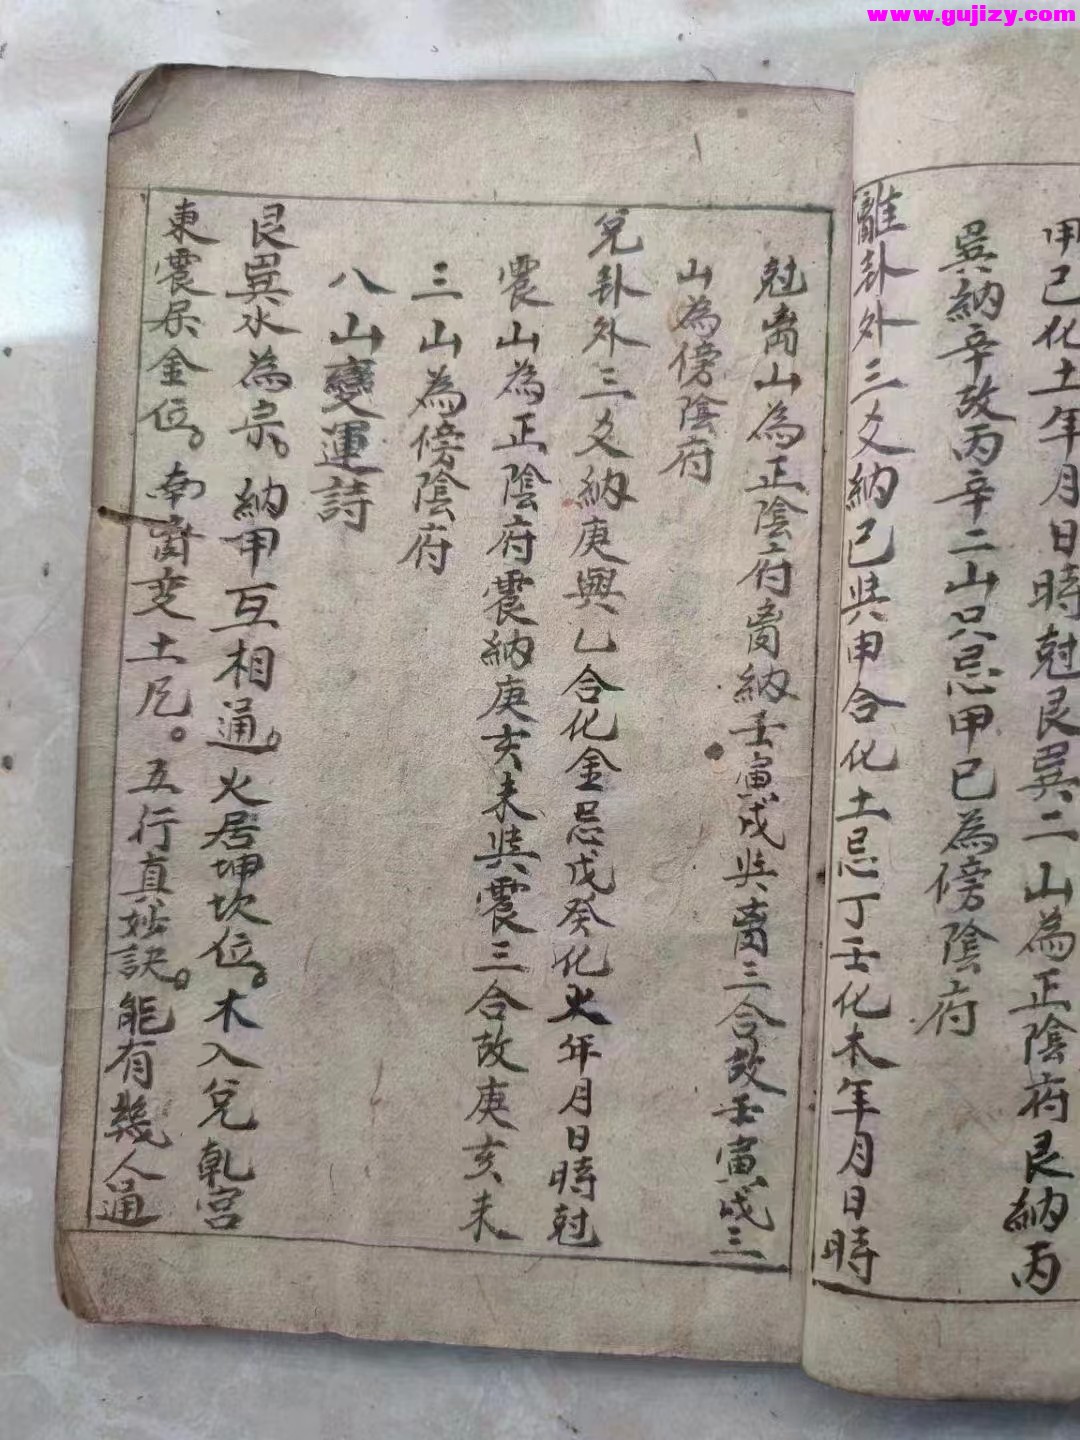 www.gujizy.com
甲己化土年月日時尅艮巽二山為正陰府艮納丙
巽納辛故丙辛二山只忌甲已為傍陰府
離卦外三爻納己與甲合化土忌丁壬化木年月日時
尅离山為正陰府离納壬寅戌與离三合故壬寅戌三
山為傍陰府
兌卦外三爻納庚與乙合化金忌戊癸化火年月日時尅
震山為正陰府震納庚亥未與震三合故庚亥未
三山為傍陰府
八山變運詩
艮巽水為宗。納甲互相通。火居坤坎位。木入兌乹宮
東震居金位。南离变土尼。五行真妙訣。能有幾人通